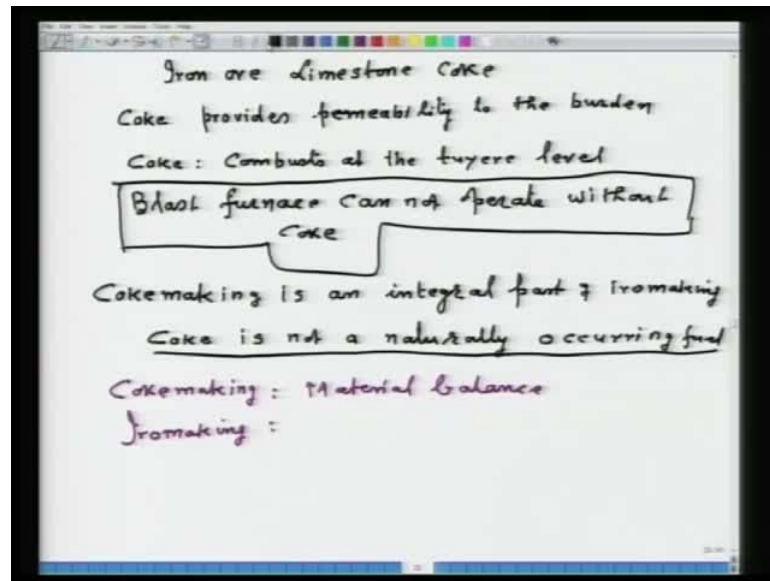 Iron ore Limestone Coke
Coke provides permeability to the burden
Coke: Combusts at the tuyere level
Blast furnace can not operate without
Coke
Cokemaking is an integral part of iromaking
Coke is not a naturally occurring fuel
Cokemaking: Material balance
Iromaking: